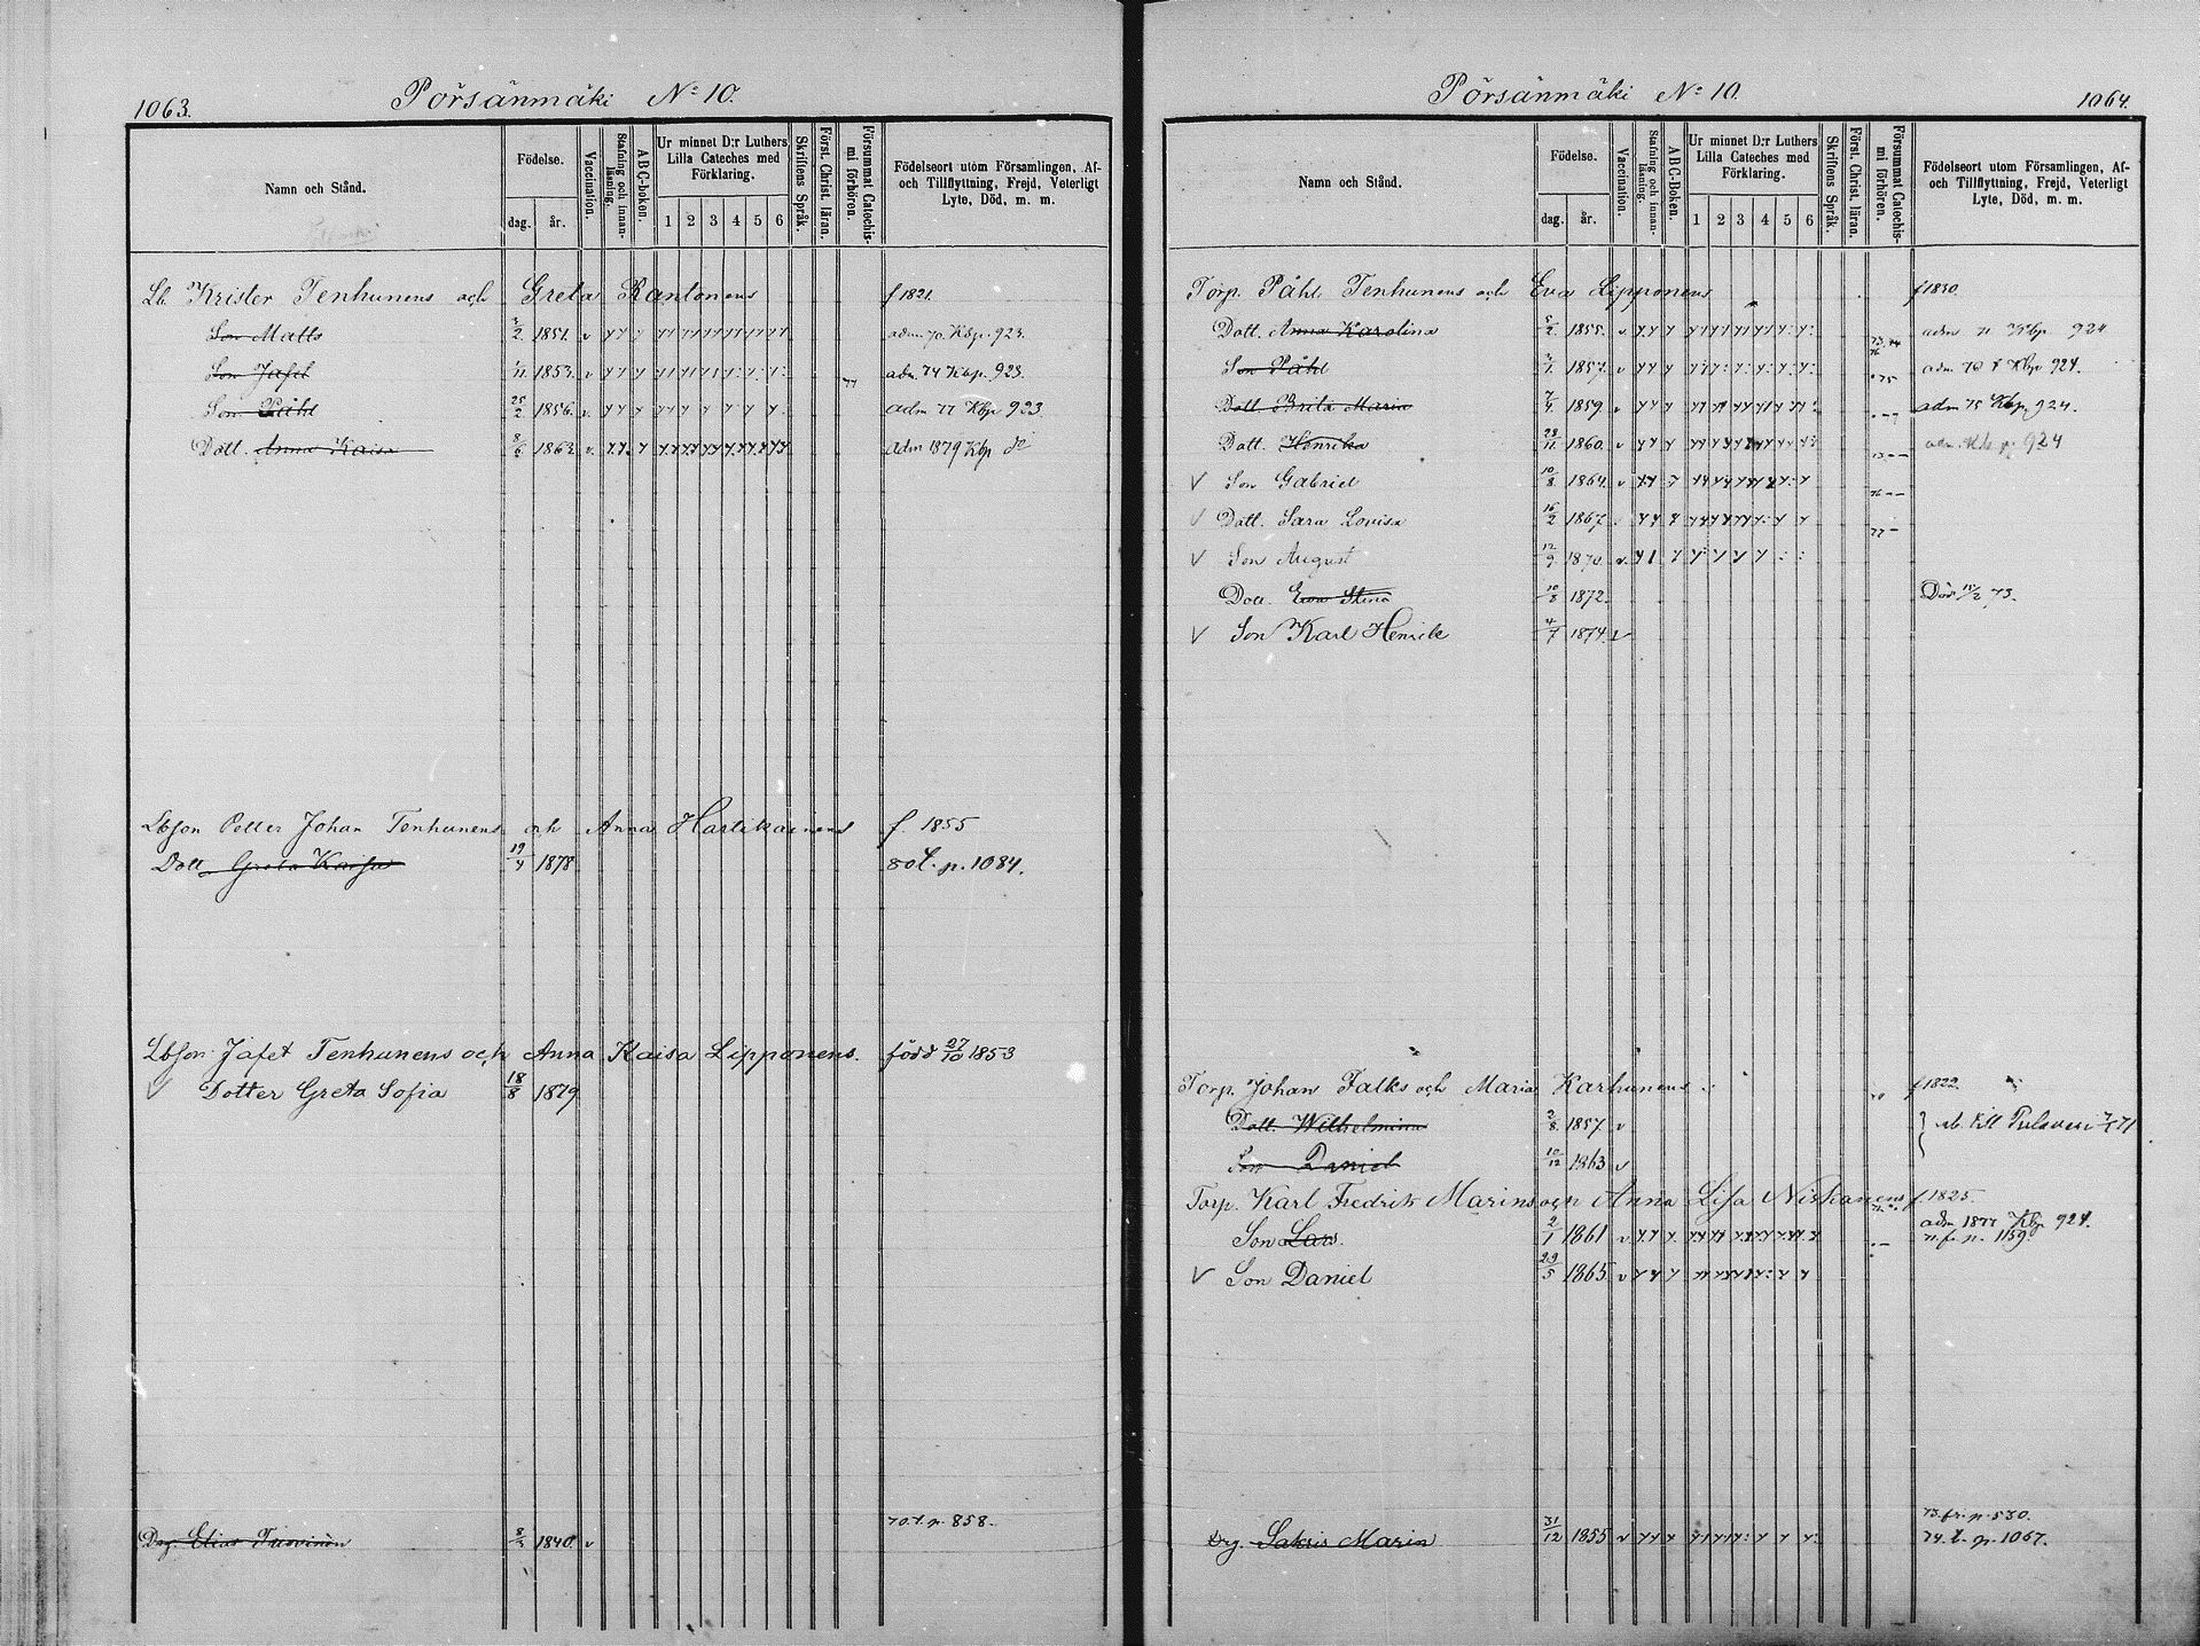 1063.
Pörsänmäki No 10.
Namn och Stånd.
Födelse.
dag.
år.
Vaccination.
Stafning och innanläsning.
A B C-boken.
Ur minnet D:r Luthers Lilla Cateches med Förklaring.
1 2 3 4 5 6
Skriftens Språk.
Först. Christ. läran.
Försummat Catechismi förhören.
Födelseort utom Församlingen, Af- och Tillflyttning, Frejd, Veterligt Lyte, Död, m. m.
Lb. Krister Tenhunens och Greta Rantonens f 1821.
Son Matts 2. 1851. v adm. 70. Kbp. 923.
Son Jafet 11. 1853. v adm. 74 Kbp. 923.
Son Påhl 25/2 1856. v. adm 77 Kbp 923
Dott. Anna Kaisa 8/6 1862 v. adm 1879 Kbp do
Lbson Petter Johan Tenhunens och Anna Hartikainens f. 1855
Dott. Greta Kaisa 19/4 1878 80 t. p. 1084.
Lbson Jafet Tenhunens och Anna Kaisa Lipponens. född 27/10 1853
V Dotter Greta Sofia 18/8 1879
Drg. Elias 1840 v 70. t. p. 858.
Pörsänmäki No 10.
1064.
Namn och Stånd.
Födelse.
dag.
år.
Vaccination.
Stafning och innanläsning.
A B C-Boken.
Ur minnet D:r Luthers Lilla Cateches med Förklaring.
1 2 3 4 5 6
Skriftens Språk.
Först. Christ. läran.
Försummat Catechismi förhören.
Födelseort utom Församlingen, Af- och Tillflyttning, Frejd, Veterligt Lyte, Död, m. m.
Torp. Påhl Tenhunens och Eva Lipponens f 1830.
Dott. Anna Karolina 5/2. 1855. v adm 71 Kbp 924
Son Påhl 1857. v 75 adm. Kbp 924.
Dott Brita Maria 7/4. 1859. v adm 75 Kbp 924.
Dott. Henrika 28/11 1860. v adm. Kbp 924
V Son Gabriel 10/8 1864. v 76 --
V Dott. Sara Lovisa 16/2 1867. 77 -
V Son August 12/9 1870. v.
Dott. Eva Stina 10/8 1872. Död 15/2 73.
V Son Karl Henrik 4/7 1874. V
Torp. Johan Falks och Maria Karhunens f 1822.
Dott. Wilhelmina 2/8. 1857. v ab. till Pulavesi 71
Son Daniel 10/12 1863 v
Torp. Karl Fredrik Marins och Anna Lisa Niskanens f. 1825
Son Lars. 2/1 1861 v. adm 1877 Kbp 924.
n. f. n. 1159.
V Son Daniel 29/5 1865 v
73. fr. p. 530.
Drg. Sakris Marin 31/12 1855 v 74. t. p. 1067.